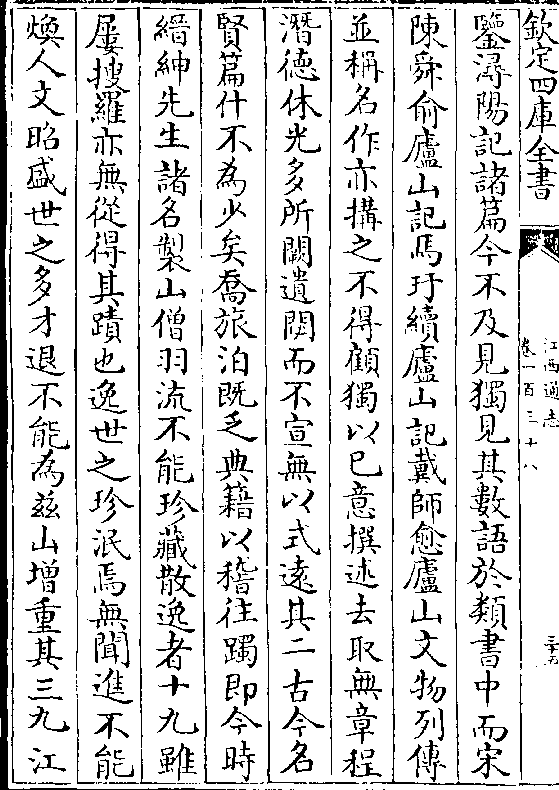 欽定四庫全書
江西通志
卷一百三十八
三十五
鑒潯陽記諸篇今不及見獨見其數語於類書中而宋
陳舜俞廬山記馬玗續廬山記戴師愈廬山文物列傳
並稱名作亦搆之不得顧獨以已意撰述去取無章程
潛德休光多所闕遺閟而不宣無以式遠其二古今名
賢篇什不為少矣喬旅泊既乏典籍以稽往躅即今時
縉紳先生諸名製山僧羽流不能珍藏散逸者十九雖
屢搜羅亦無從得其蹟也逸世之珍泯焉無聞進不能
煥人文昭盛世之多才退不能為兹山增重其三九江